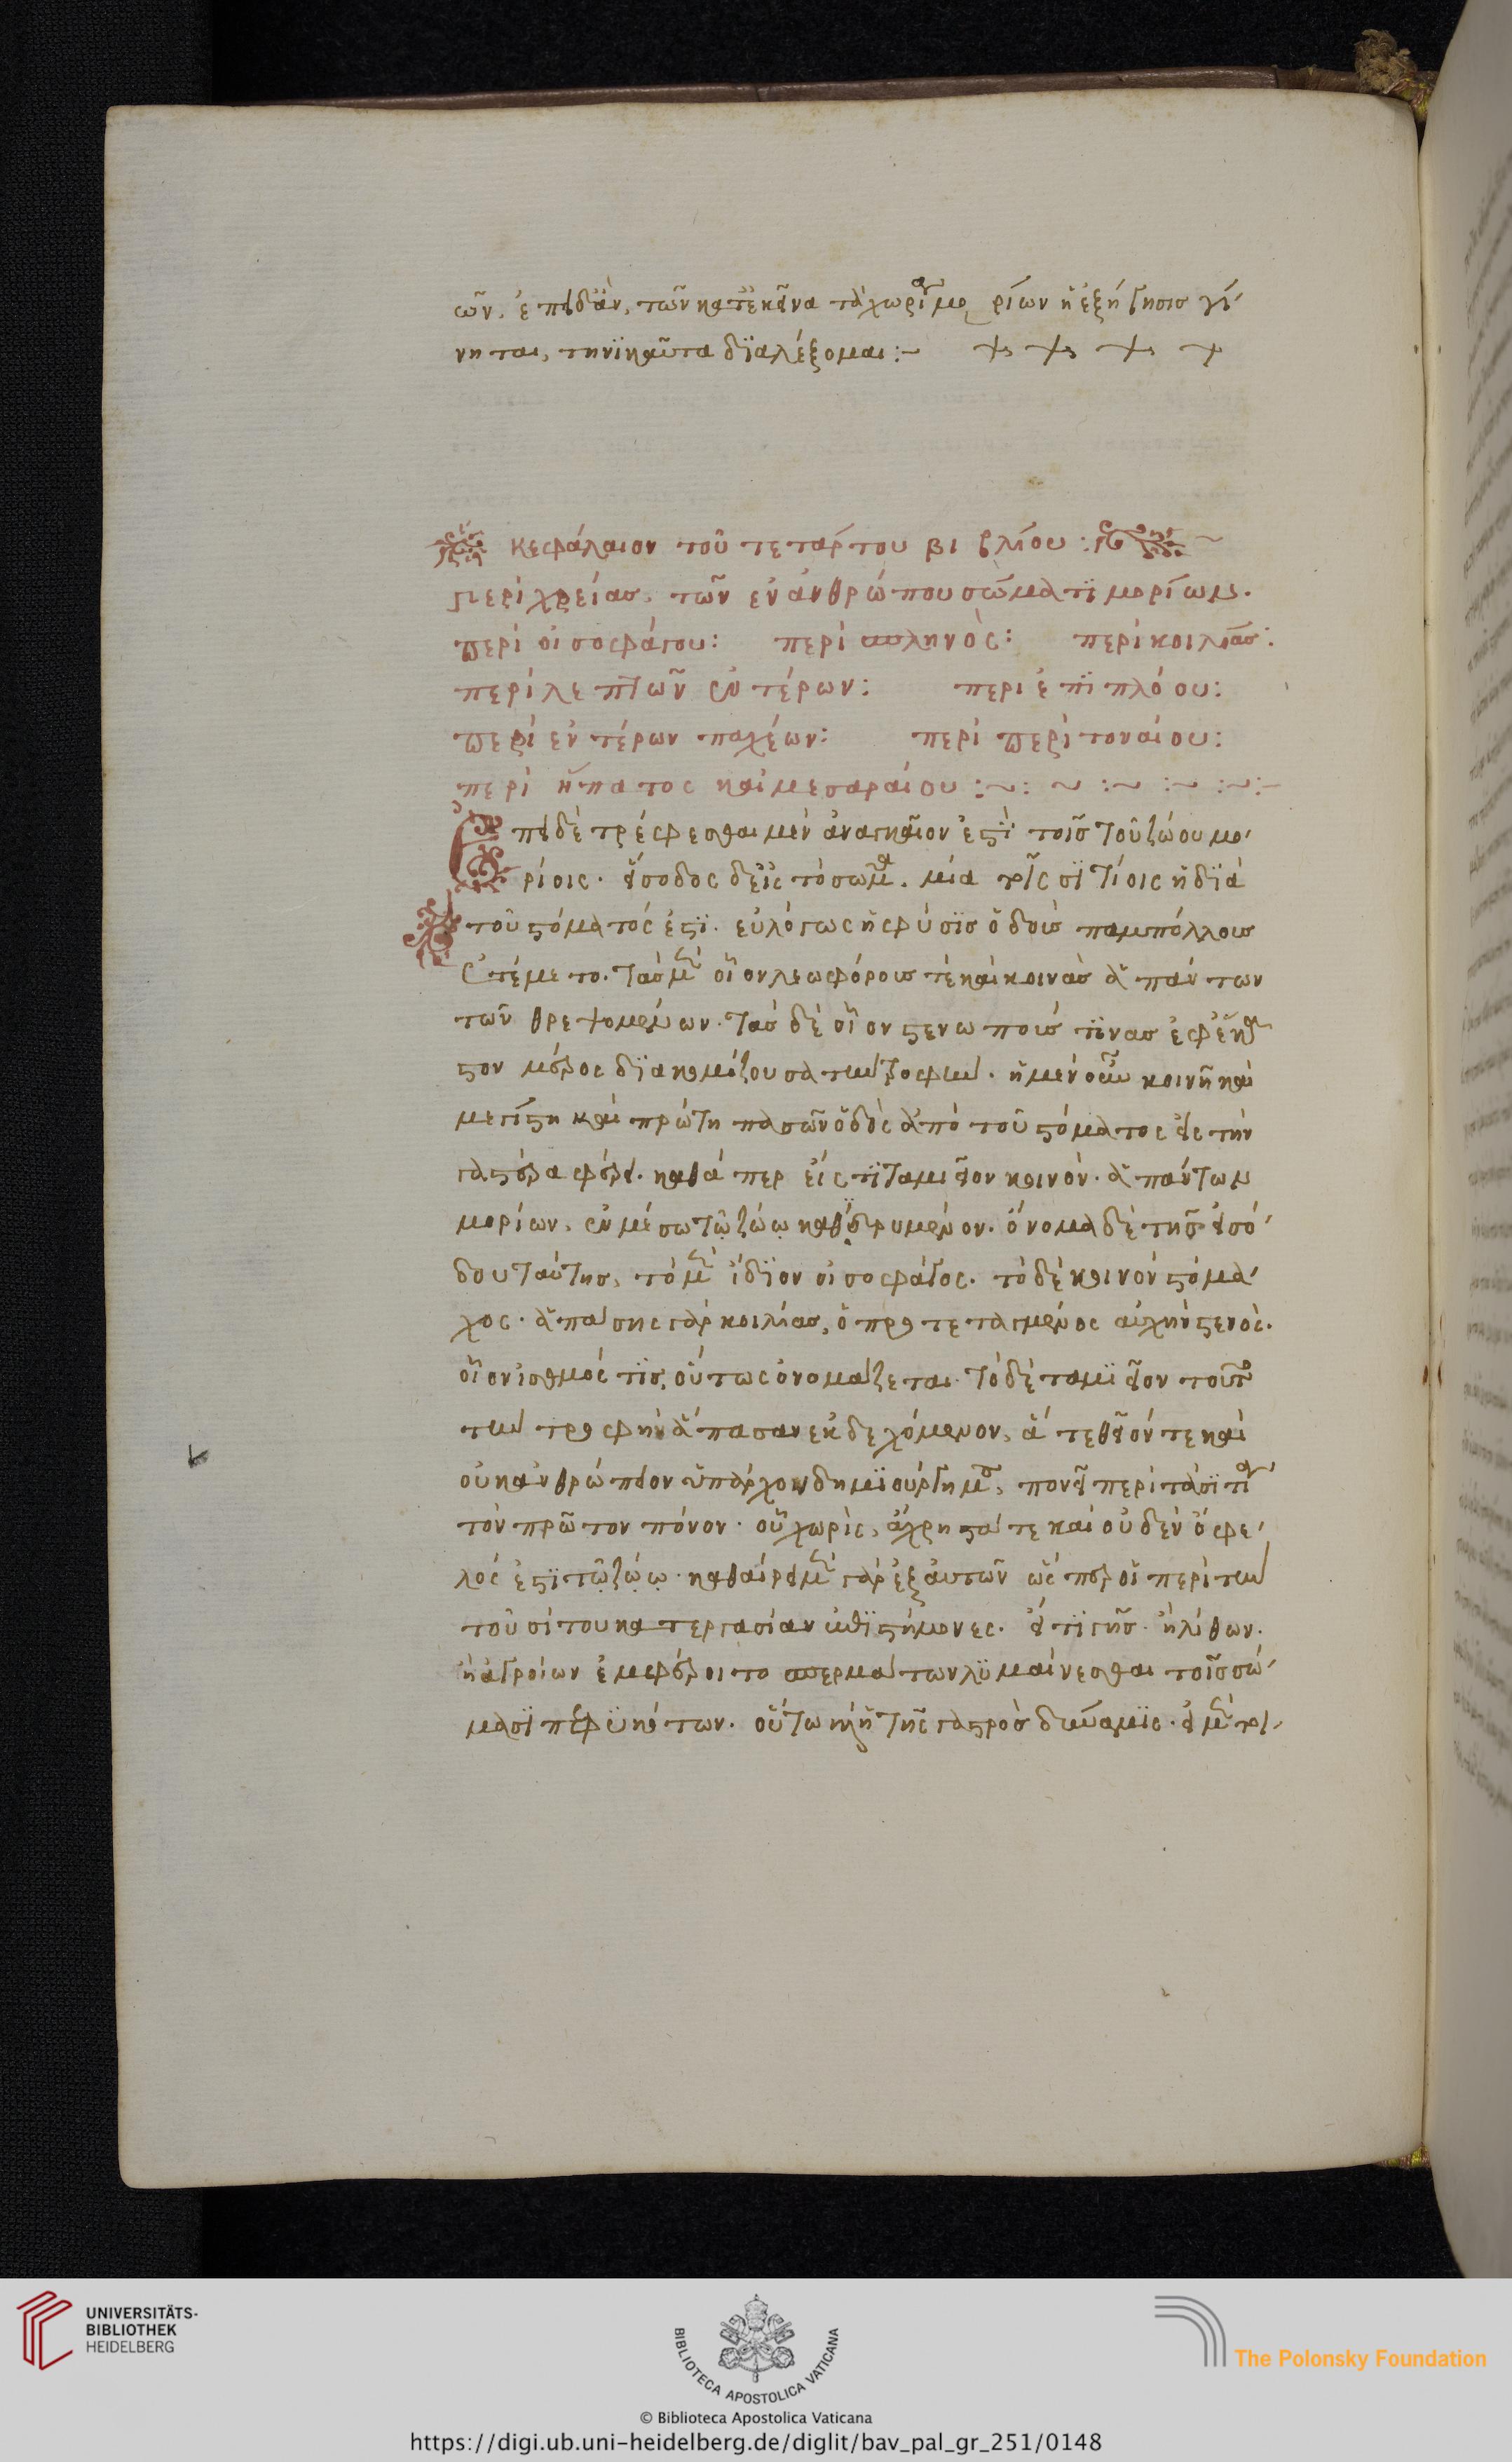 σῶν. ἐπειδὰν, τῶν κατέκεινα τὰ χωρία μορίων ἡ ἐξήγησις γί-
νηται, τηνϊκαῦτα δϊαλέξομαι:~
κεφάλαιον τοῦ τετάρτου βιβλίου:
περὶ χρείας, τῶν ἐν ἀνθρώπου σώματϊ μορίων.
περὶ οἰσοφάγου: περὶ σπληνὸς: περὶ κοιλίας:
περὶ λεπτῶν ἐντέρων: περὶ ἐπϊπλόου:
περὶ ἐντέρων παχέων: περὶ περϊτοναίου:
περὶ ἥπατος καὶ μεσαραίου:~:~:~:~:~:-
Ἐπειδὲ τρέφεσθαι μὲν ἀναγκαῖον ἐστϊ τοῖς τοῦ ζώου μο-
ρίοις. εἴσοδος δεἰς τὸ σῶμα. μία τοῖς σϊτίοις ἡ δϊὰ
τοῦ στόματός ἐστϊ. εὐλόγως ἡ φύσϊς ὁδοὺς παμπόλλους
ἐτέμετο. τὰς μὲν οἷον λεωφόρους τὲ καὶ κοινὰς ἁπάντων
τῶν θρεψομένων. τὰς δὲ οἷον στενωποὺς τϊνας ἐφ' ἕκα-
στον μέρος δϊακομίζουσα τὴν τροφὴν. ἡ μὲν οὖν κοινὴ καὶ
μεγίστη καὶ πρώτη πασῶν ὁδὸς ἀπὸ τοῦ στόματος εἰς τὴν
γαστέρα φέρει. καθάπερ εἴς τϊ ταμιεῖον κοινὸν. ἁπάντων
μορίων. ἐν μέσω τῷ ζώῳ καθϊδρυμένον. ὄνομα δὲ τῆς εἰσό-
δου ταύτης, τὸ μὲν ἴδϊον οἰσοφάγος. τὸ δὲ κοινὸν στόμα-
χος. ἁπάσης γὰρ κοιλίας, ὁ προτεταγμένος αὐχὴν στενὸς.
οἷον ἰσθμός τϊς, οὕτως ὀνομάζεται. τὸ δὲ ταμϊεῖον τοῦτο
τὴν τροφὴν ἅπασαν ἐκδεχόμενον, ἅτε θεῖόν τε καὶ
οὐκ ἀνθρώπειον ὑπάρχον δημϊούργημα, πονεῖ περὶ τὰ σϊτία
τὸν πρῶτον πόνον. οὗ χωρὶς, ἄχρηστά τε καὶ οὐδὲν ὄφε-
λός ἐστϊ τῷ ζώῳ. καθαίρει μὲν γὰρ ἐξ αὐτῶν ὥσπερ οἱ περὶ τὴν
τοῦ σίτου κατεργασίαν ἐπϊστήμονες. εἴ τϊ γῆς. ἢ λίθων.
ἢ ἀγροίων ἐμεφέροιτο σπερμάτων λϋμαίνεσθαι τοῖς σώ-
μασϊ πεφϋκότων. οὕτω καὶ ἡ τῆς γαστρὸς δύναμϊς. εἰ μὲν τοι-
UNIVERSITÄTS-
BIBLIOTHEK
HEIDELBERG
BIBLIOTECA APOSTOLICA VATICANA
The Polonsky Foundation
© Biblioteca Apostolica Vaticana
https://digi.ub.uni-heidelberg.de/diglit/bav_pal_gr_251/0148